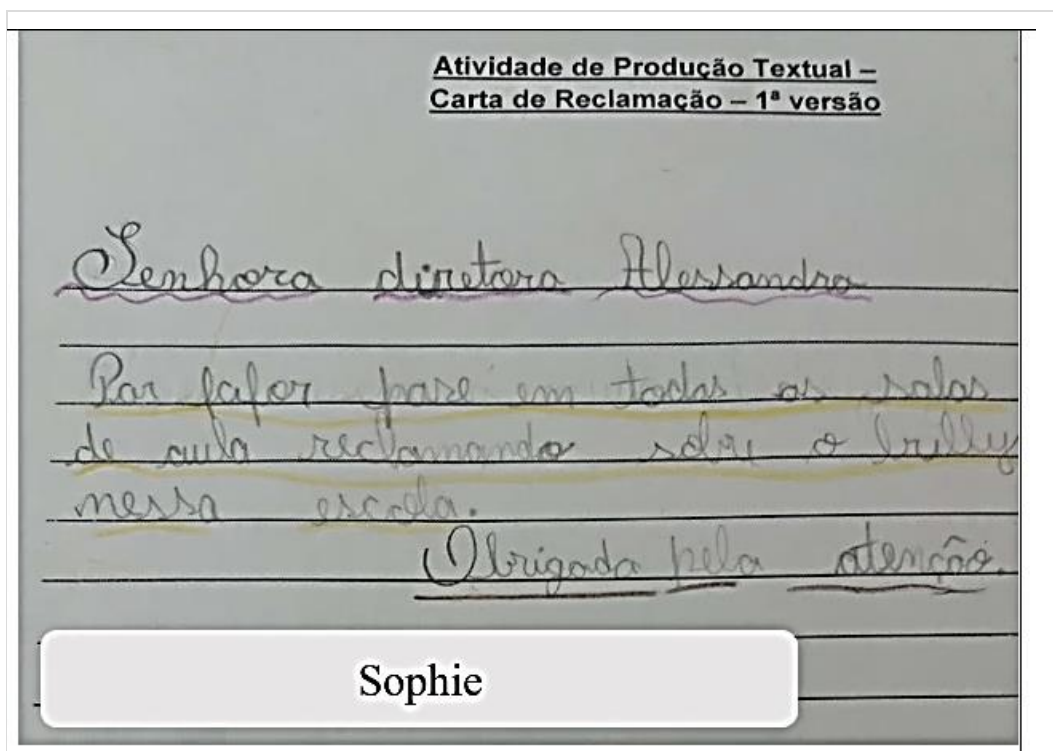 Atividade de Produção Textual –
Carta de Reclamação – 1ª versão
Senhora diretora Alessandra
Par fafor pase em todas as salas
de aula reclamando sobre o brilly
nessa escola.
Obrigada pela atenção.
Sophie